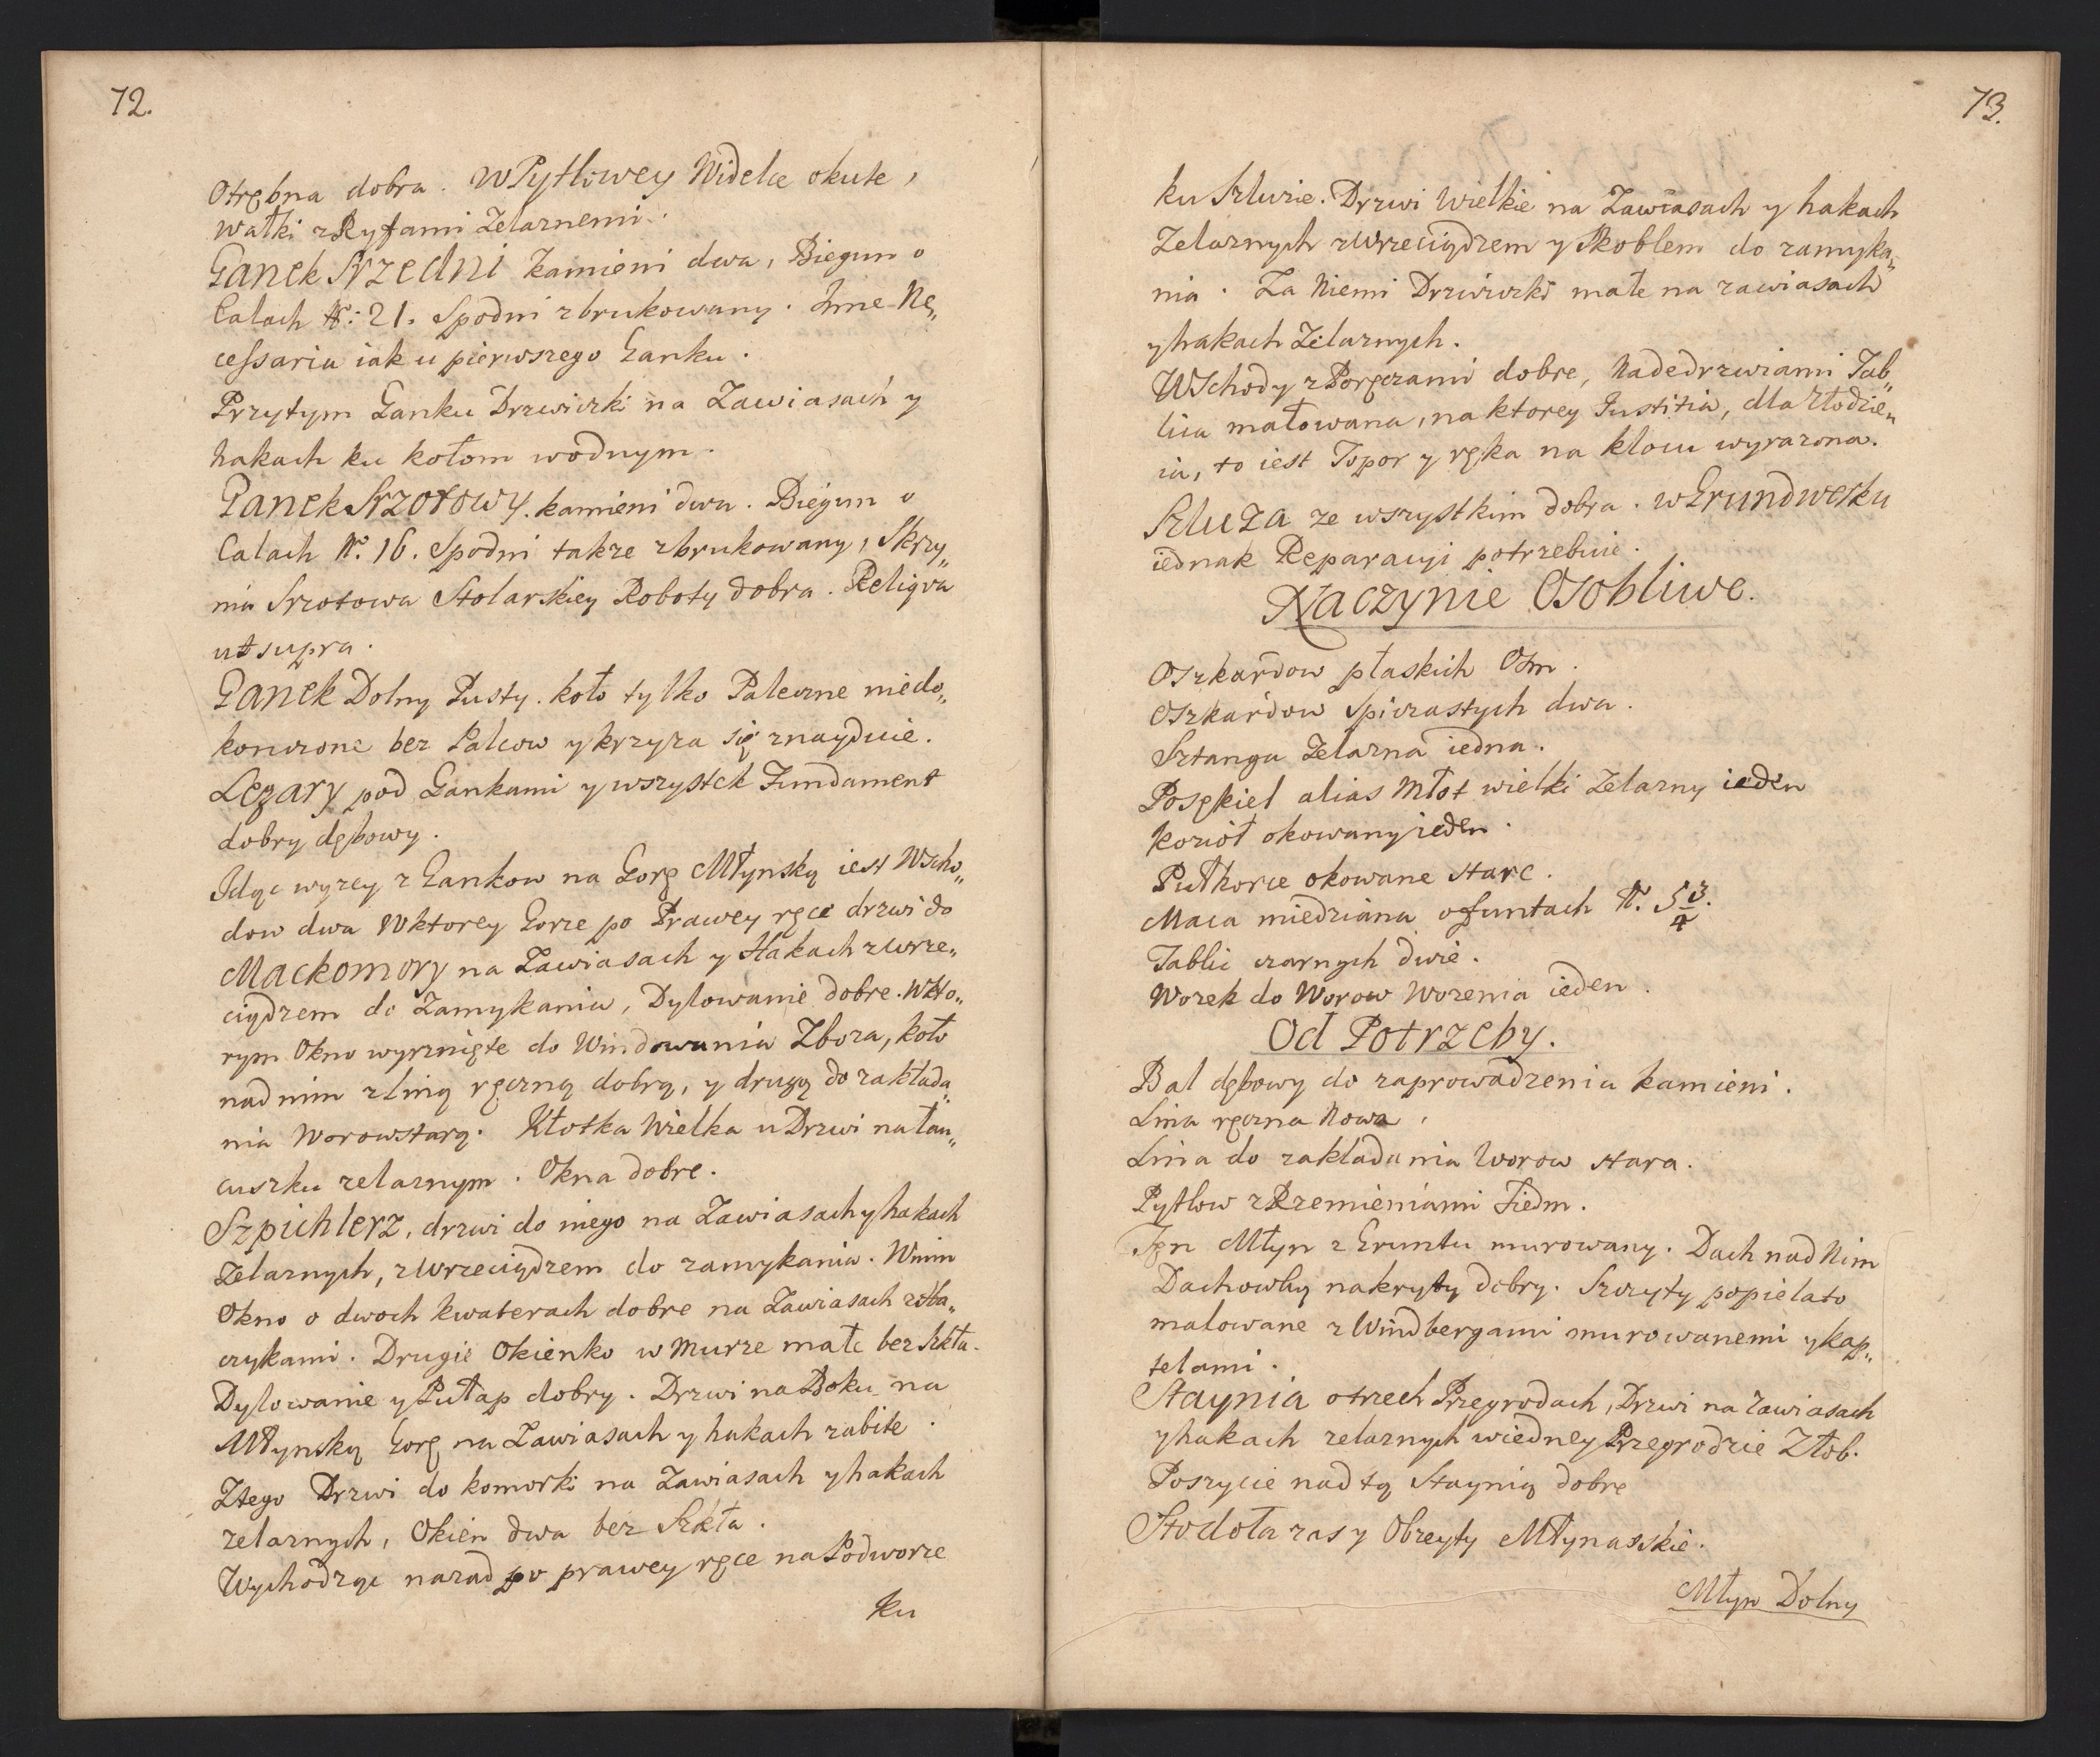 72.
Otrębna dobra. W Pytlowey Widelce okute,
Wałki z Ryfami Zelaznemi.
Ganek Srzedni kamieni dwa, Biegun o
Calach N: 21. Spodni zbrukowany. Inne Ne„
cessaria iak u pierwszego Ganku.
Przytym Ganku Drzwiczki na Zawiasach y
hakach ku kołom wodnym.
Ganek Srzotowy. kamieni dwa. Biegun o
Calach N. 16. Spodni takze zbrukowany, Skrzy„
nia Srzotowa Stolarskiey Roboty dobra. Religva
ut supra.
Ganek Dolny Pusty. koło tylko Paleczne niedo„
konczone bez Palcow y krzyza się znayduie.
Legary pod Gankami y wszystek Fundament
dobry dębowy.
Idąc wyzey z Gankow na Gorę Młynską iest Wscho„
dow dwa W ktorey Gorze po Prawey ręce drzwi do
Mackomory na Zawiasach y Hakach z Wrze„
ciądzem do Zamykania, Dylowanie dobre. W kto„
rym Okno wyrznięte do Windowania Zboza, koło
nad nim z Liną ręczną dobrą, y drugą do zakłada„
nia Worow starą. Kłotka Wielka u Drzwi na łan„
cuszku zelaznym. Okna dobre.
Szpichlerz, drzwi do niego na Zawiasach y hakach
Zelaznych, z Wrzeciądzem do zamykania. W nim
Okno o dwoch kwaterach dobre na Zawiasach z Ha„
czykami. Drugie Okienko w Murze małe bez Szkła.
Dylowanie y Pułap dobry. Drzwi na Boku na
Młynską Gorę na Zawiasach y hakach zabite.
Z tego Drzwi do komorki na Zawiasach y hakach
zelaznych, Okien dwa bez Szkła.
Wychodząc nazad po prawey ręce na Podworze
ku
73.
ku Szluzie. Drzwi Wielkie na Zawiasach y hakach
Zelaznych z Wrzeciądzem y Skoblem do zamyka„
nia. Za Niemi Drzwiczki małe na zawiasach
y hakach Zelaznych.
Wschody z Poręczami dobre, Nadedrzwiami Tab„
lica malowana, na ktorey Justitia, dla złodzie„
ia, to iest Topor y ręka na klocu wyrazona.
Szluza ze wszystkim dobra. w Grundwerku
iednak Reparacyi potrzebuie.
Naczynie Osobliwe.
Oszkardow płaskich Osm.
Oszkardow Spiczastych dwa.
Sztanga Zelazna iedna.
Posękiel alias Młot wielki Zelazny ieden
Kozioł okowany ieden.
Pułkorce okowane stare.
Maca miedziana o funtach N. 5 3/4.
Tablic czarnych dwie.
Worek do Worow Wozenia ieden.
Od Potrzeby.
Bal dębowy do zaprowadzenia kamieni.
Lina ręczna Nowa,
Lina do zakladania Worow stara.
Pytlow z Rzemieniami Siedm.
Ten Młyn z Gruntu murowany. Dach nad Nim
Dachowką nakryty dobry. Szczyty popielato
malowane z Windbergami murowanemi y kap„
telami.
Staynia o trzech Przegrodach, Drzwi na zawiasach
y hakach zelaznych w iedney Przegrodzie Złob.
Poszycie nad tą Staynią dobre
Stodoła zas y Obreyty Młynarskie.
Młyn Dolny